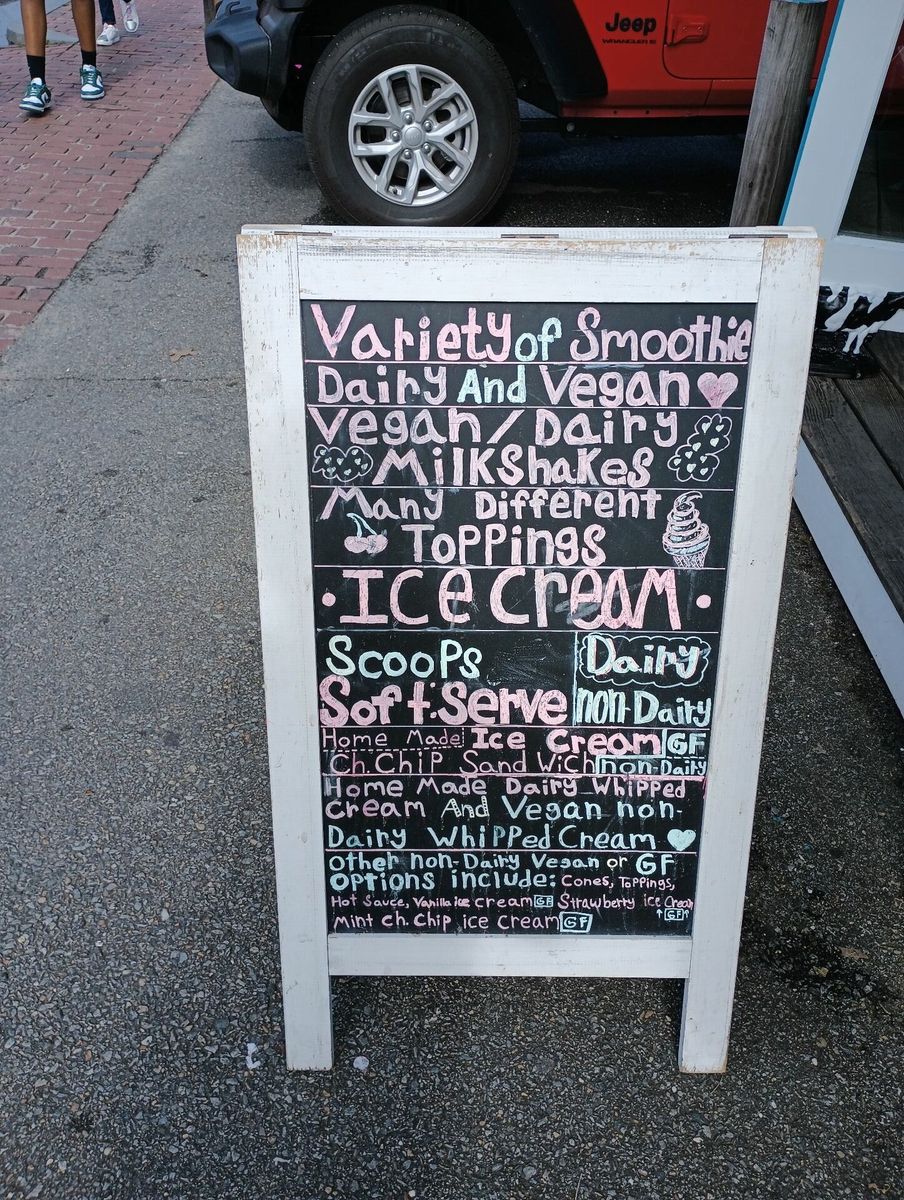 Jeep
WRANGLER
Variety of Smoothie
Dairy And Vegan
Vegan/Dairy
Milkshakes
Many Different
Toppings
Ice Cream
Scoops Dairy
Soft Serve non-Dairy
Home Made Ice Cream GF
Ch. Chip Sandwich non-Dairy
Home Made Dairy Whipped
Cream And Vegan non-
Dairy Whipped Cream
other non-Dairy Vegan or GF
options include: Cones, Toppings,
Hot Sauce, Vanilla ice cream GF Strawberry ice Cream
↑GF↑
Mint Ch. Chip ice cream GF